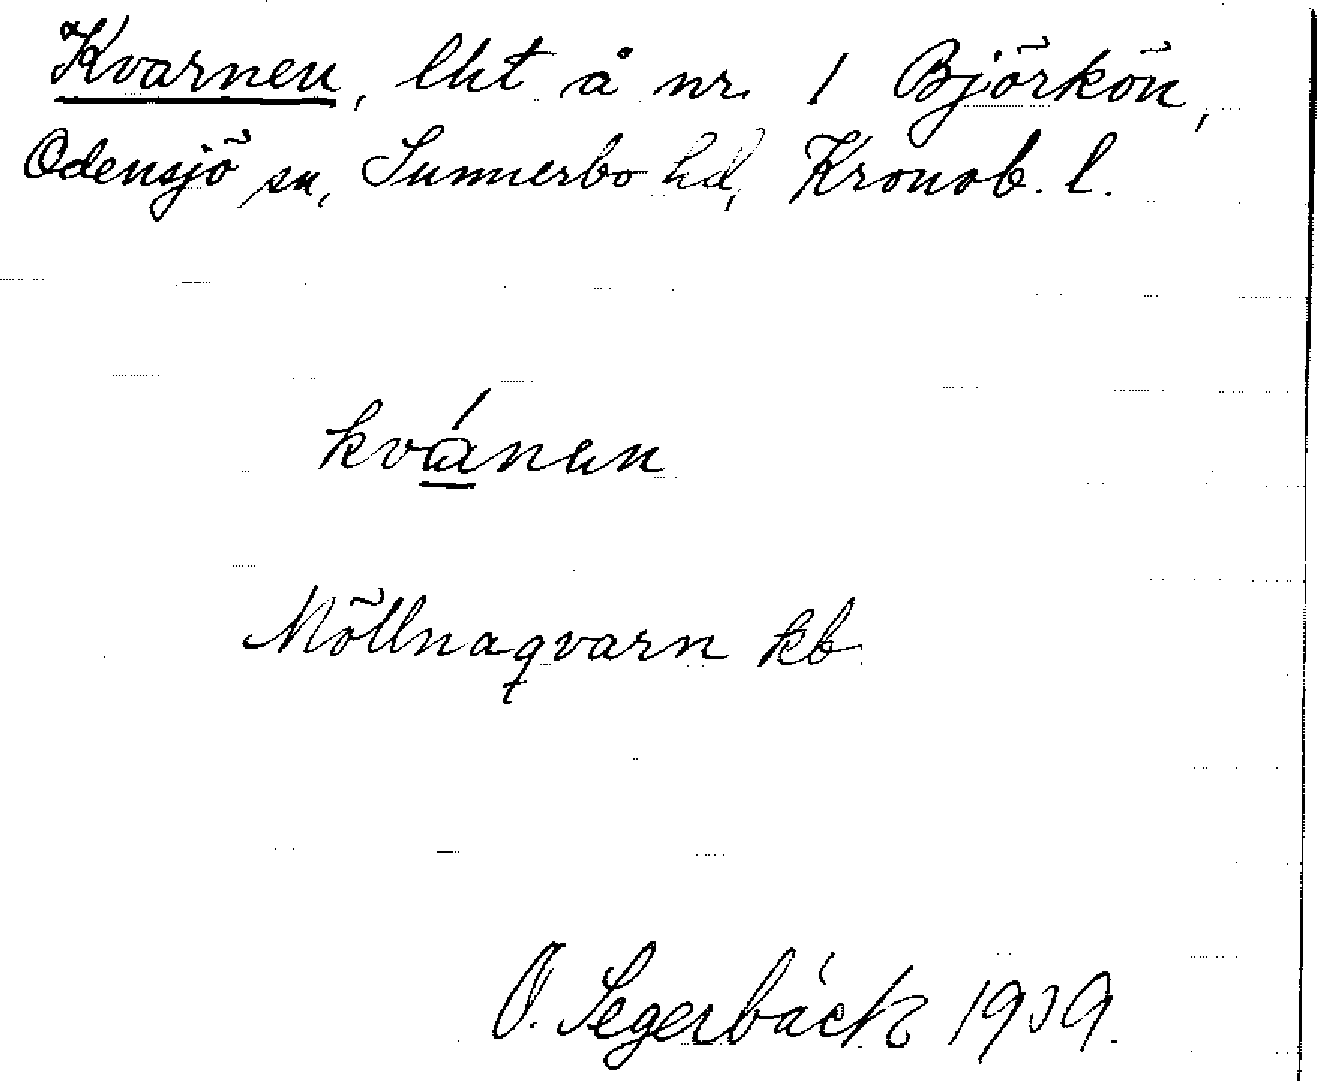 Kvarnen, lht å nr. 1 Björkön,
Odensjö sn, Sunnerbo hd, Kronob. l.
kvánen
Möllnaqvarn kb
O. Segerbäck 1939.